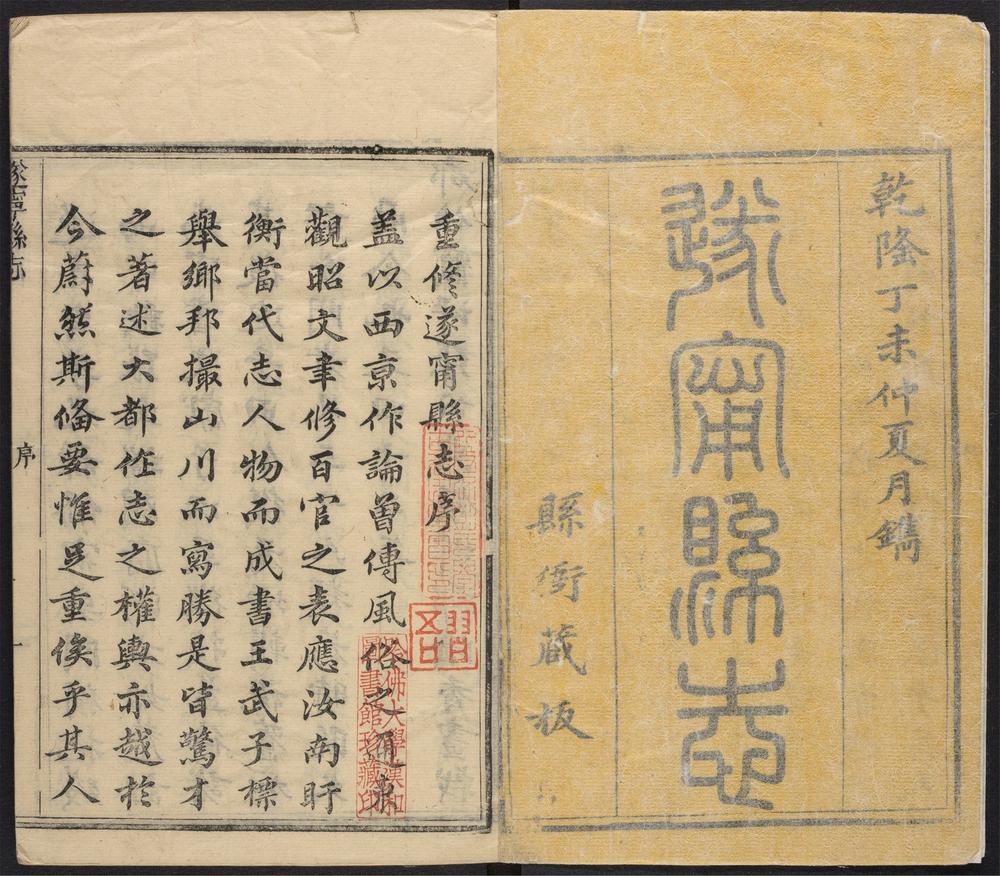 乾隆丁未仲夏月鐫
遂甯縣志
縣衙藏板
重修遂甯縣志序
蓋以西京作論曾傳風俗之通東
觀昭文聿修百官之表應汝南盱
衡當代志人物而成書王武子標
舉鄉邦撮山川而寫勝是皆驚才
之著述大都作志之權輿亦越於
今蔚然斯備要惟足重俟乎其人
遂寧縣志
序
一
哈佛大學漢和
圖書館珍藏印